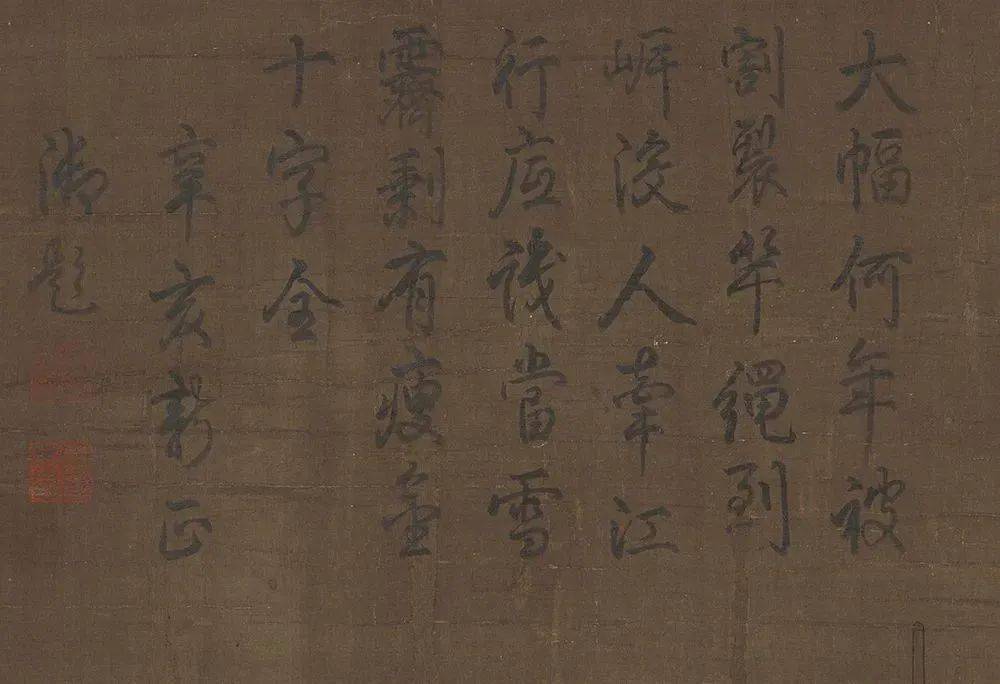 大幅何年被
割裂笮繩到
岸没人牽江
行應識當雪
霽剩有瘦金
十字全
辛亥新正
御題